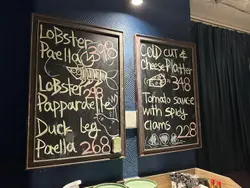 Lobster
Paella 398
Lobster
Pappardelle 298
Duck leg
Paella 268
Cold cut &
Cheese Platter
348
Tomato sauce
with spicy
clams 228